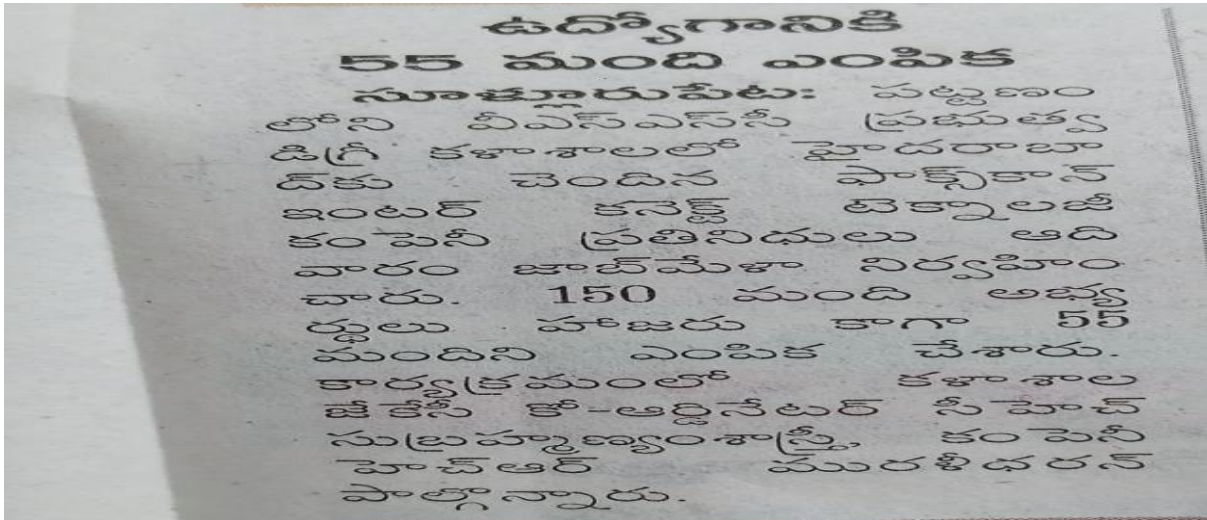 ఉద్యోగానికి
55 మంది ఎంపిక
సూళ్లూరుపేట: పట్టణం
లోని వీఎస్ఎస్‌సీ ప్రభుత్వ
డిగ్రీ కళాశాలలో హైదరాబా
ద్‌కు చెందిన ఫాక్స్‌కాన్
ఇంటర్ కనెక్ట్ టెక్నాలజీ
కంపెనీ ప్రతినిధులు ఆది
వారం జాబ్‌మేళా నిర్వహిం
చారు. 150 మంది అభ్య
ర్థులు హాజరు కాగా 55
మందిని ఎంపిక చేశారు.
కార్యక్రమంలో కళాశాల
జేకేసీ కో-ఆర్డినేటర్ సీహెచ్
సుబ్రహ్మణ్యంశాస్త్రి, కంపెనీ
హెచ్ఆర్ మురళీధరన్
పాల్గొన్నారు.